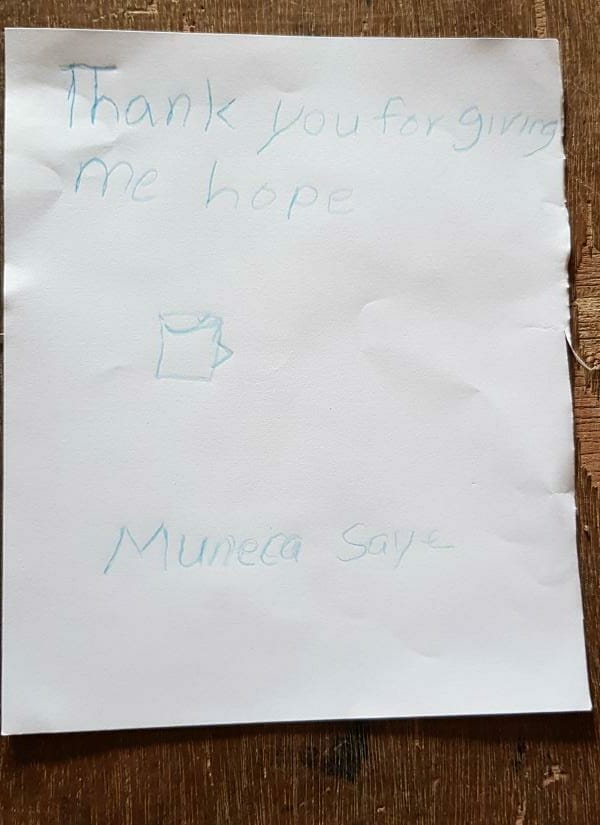 Thank you for giving
me hope
Muneca Saye